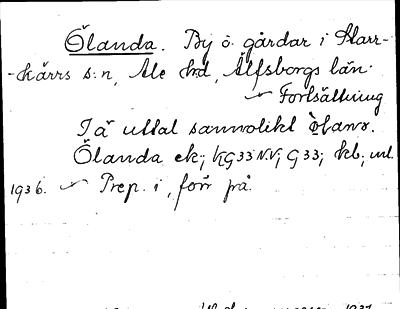 Ölanda. By o. gårdar i Starr-
-kärrs s:n, Ale hd, Älfsborgs län.
Fortsättning
I ä uttal sannolikt
Ölanda ek; KG33 N.V; G33; kb, ml.
1936. Prep. i, förr på.